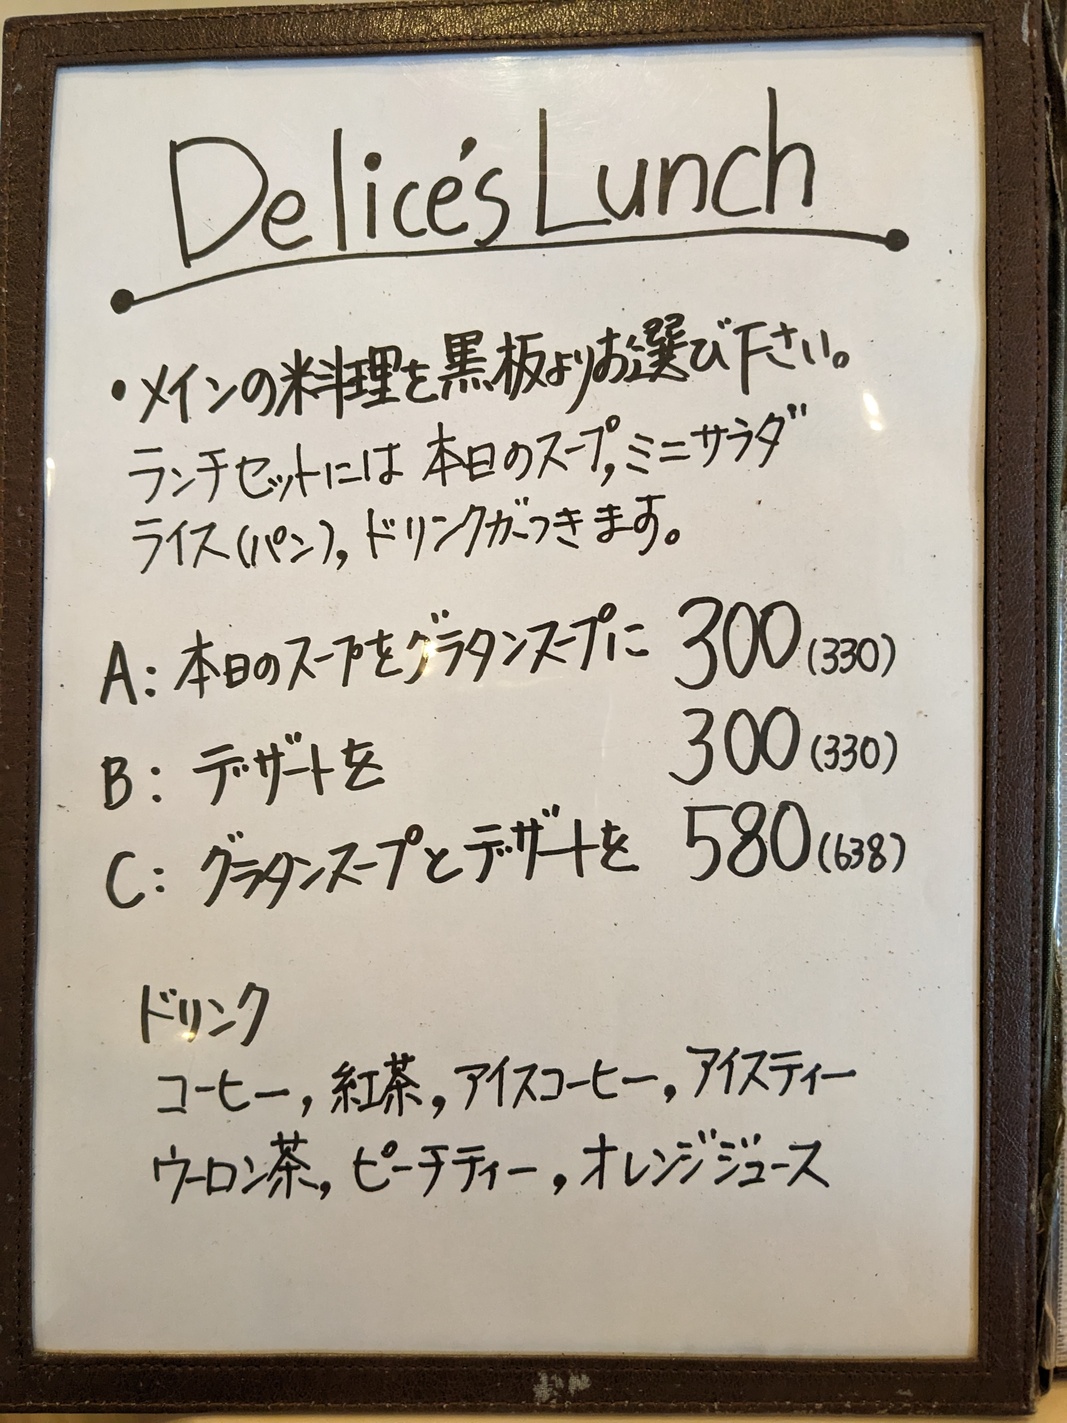 Delice's Lunch
・メインの料理を黒板よりお選び下さい。
ランチセットには 本日のスープ, ミニサラダ
ライス(パン), ドリンクがつきます。
A: 本日のスープをグラタンスープに 300(330)
B: デザートを 300(330)
C: グラタンスープとデザートを 580(638)
ドリンク
コーヒー, 紅茶, アイスコーヒー, アイスティー
ウーロン茶, ピーチティー, オレンジジュース